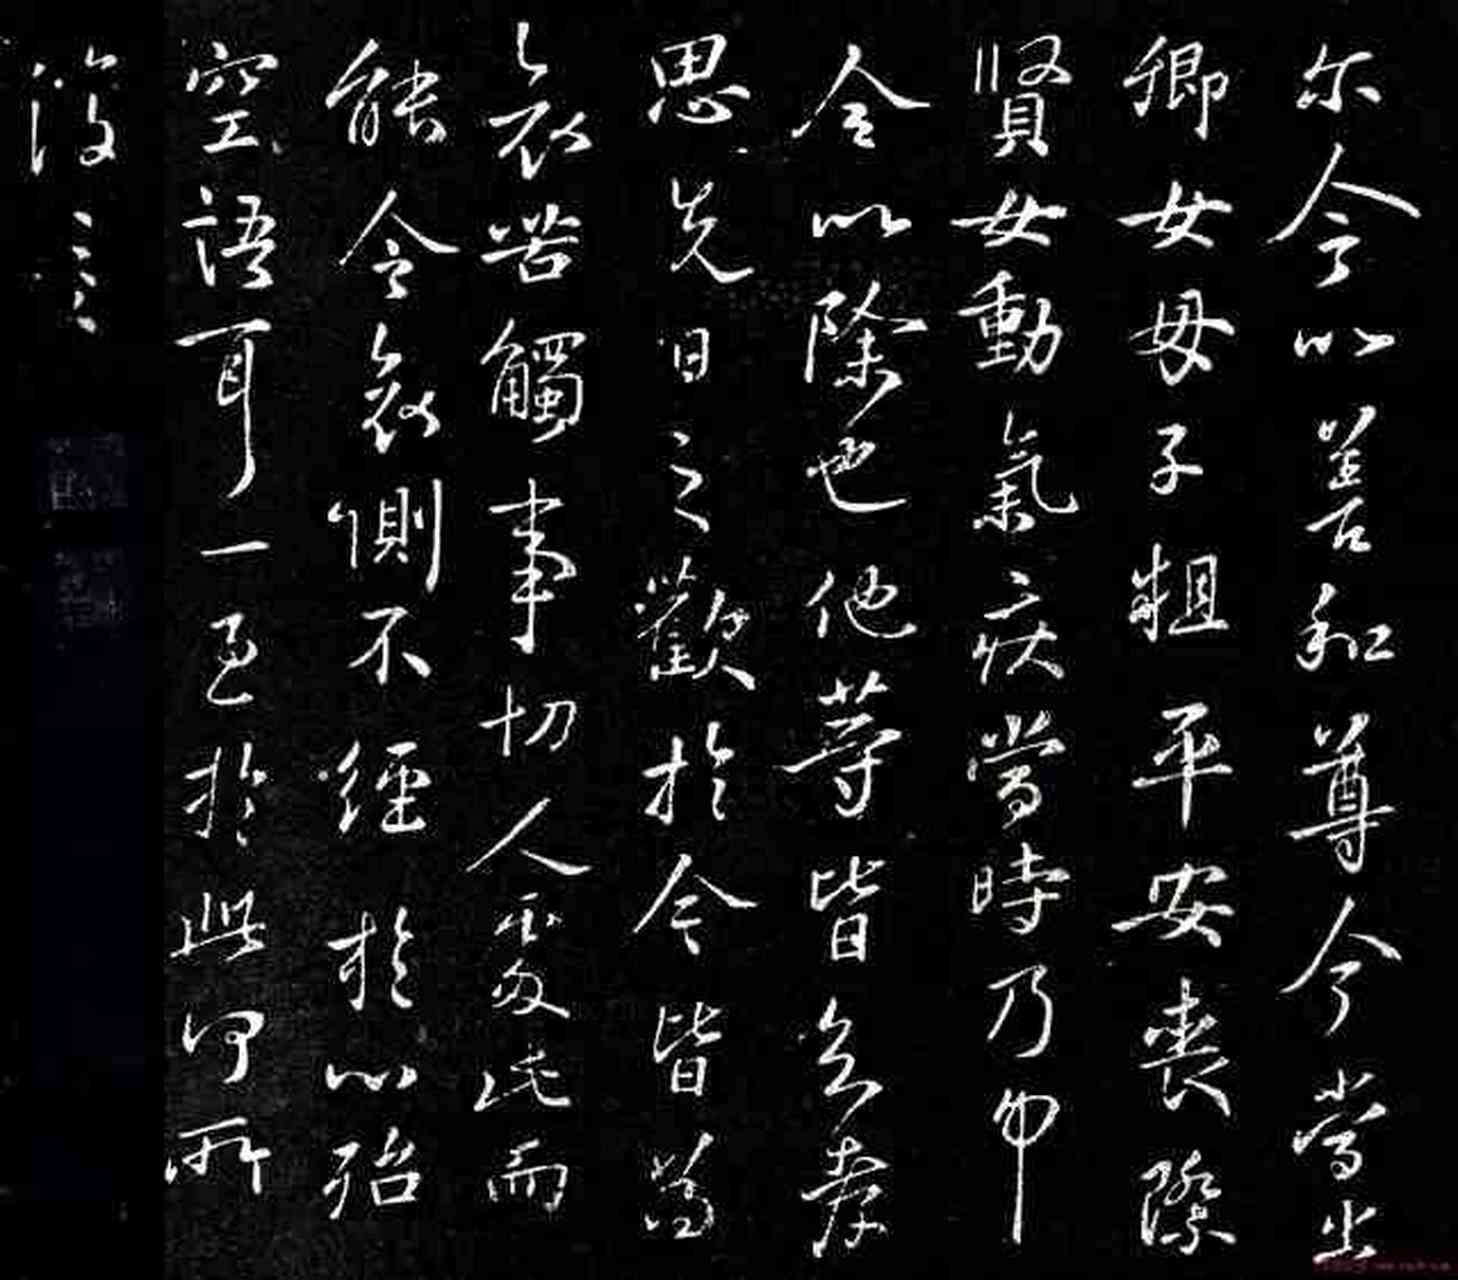 尔今以善和尊今当出
卿女母子粗平安丧際
賢女動氣疾當時乃
令以除也他等皆孝
思先日之歡於今皆為
哀苦觸事切人處此而
能令哀惻不經於心殆
空語耳一至於此何所
復言